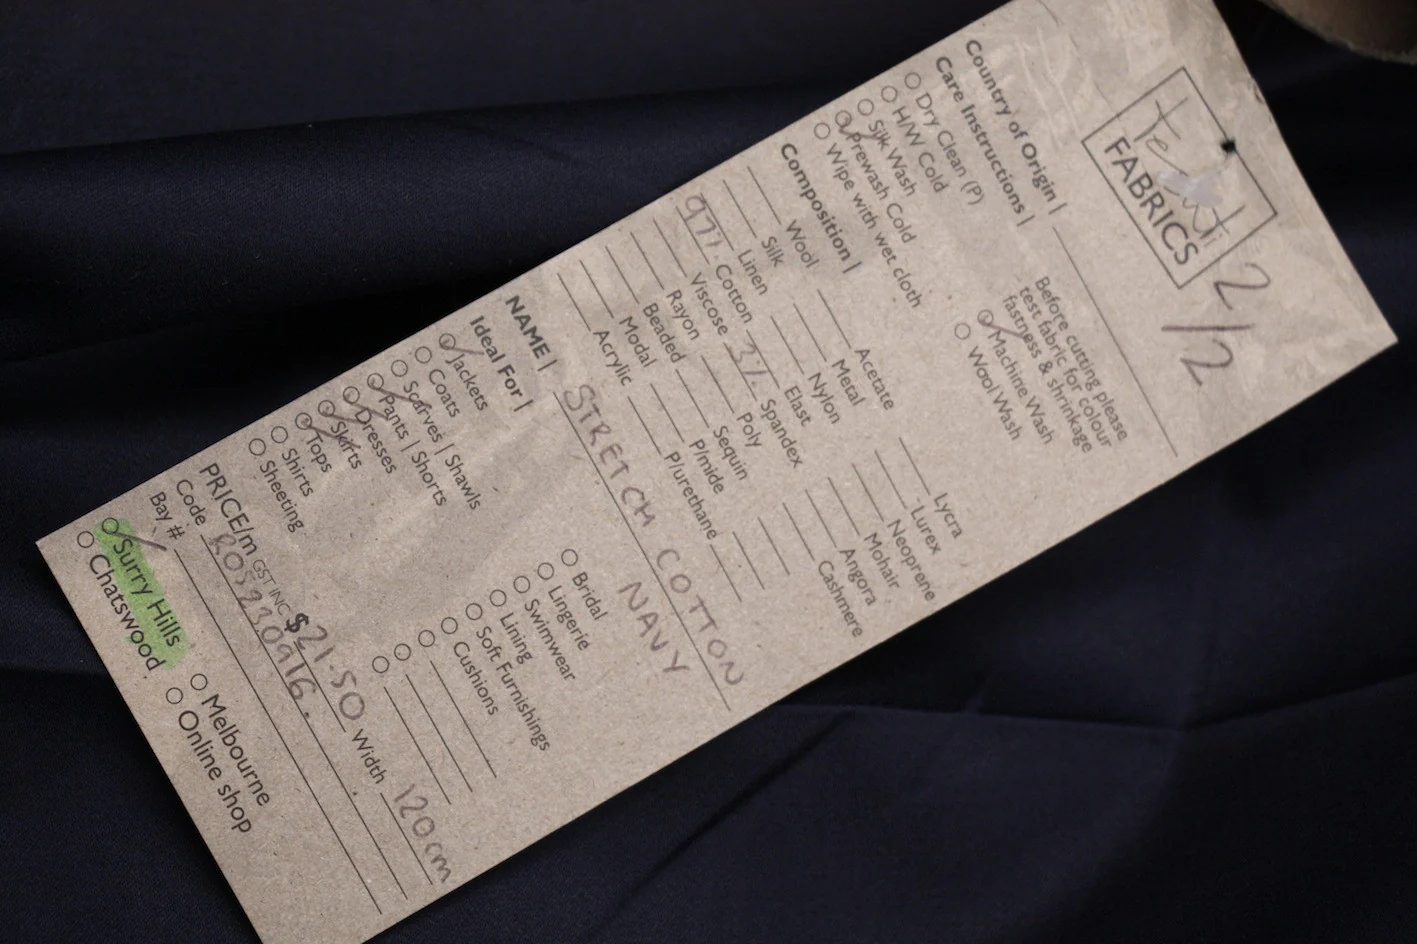 Tessuti
FABRICS
2/2
Country of Origin |
Care Instructions |
Before cutting please
test fabric for colour
fastness & shrinkage
Dry Clean (P)
H/W Cold
Silk Wash
Prewash Cold
Wipe with wet cloth
Machine Wash
Wool Wash
Composition |
Wool
Silk
Linen
97% Cotton
Viscose
Rayon
Beaded
Modal
Acrylic
Acetate
Metal
Nylon
Elast
3% Spandex
Poly
Sequin
P/mide
P/urethane
Lycra
Lurex
Neoprene
Mohair
Angora
Cashmere
NAME | STRETCH COTTON
NAVY
Ideal For |
Jackets
Coats
Scarves | Shawls
Pants | Shorts
Dresses
Skirts
Tops
Shirts
Sheeting
Bridal
Lingerie
Swimwear
Lining
Soft Furnishings
Cushions
PRICE/m GST INC $21.50 Width 120cm
Code ROS230916.
Bay #
Surry Hills
Chatswood
Melbourne
Online shop